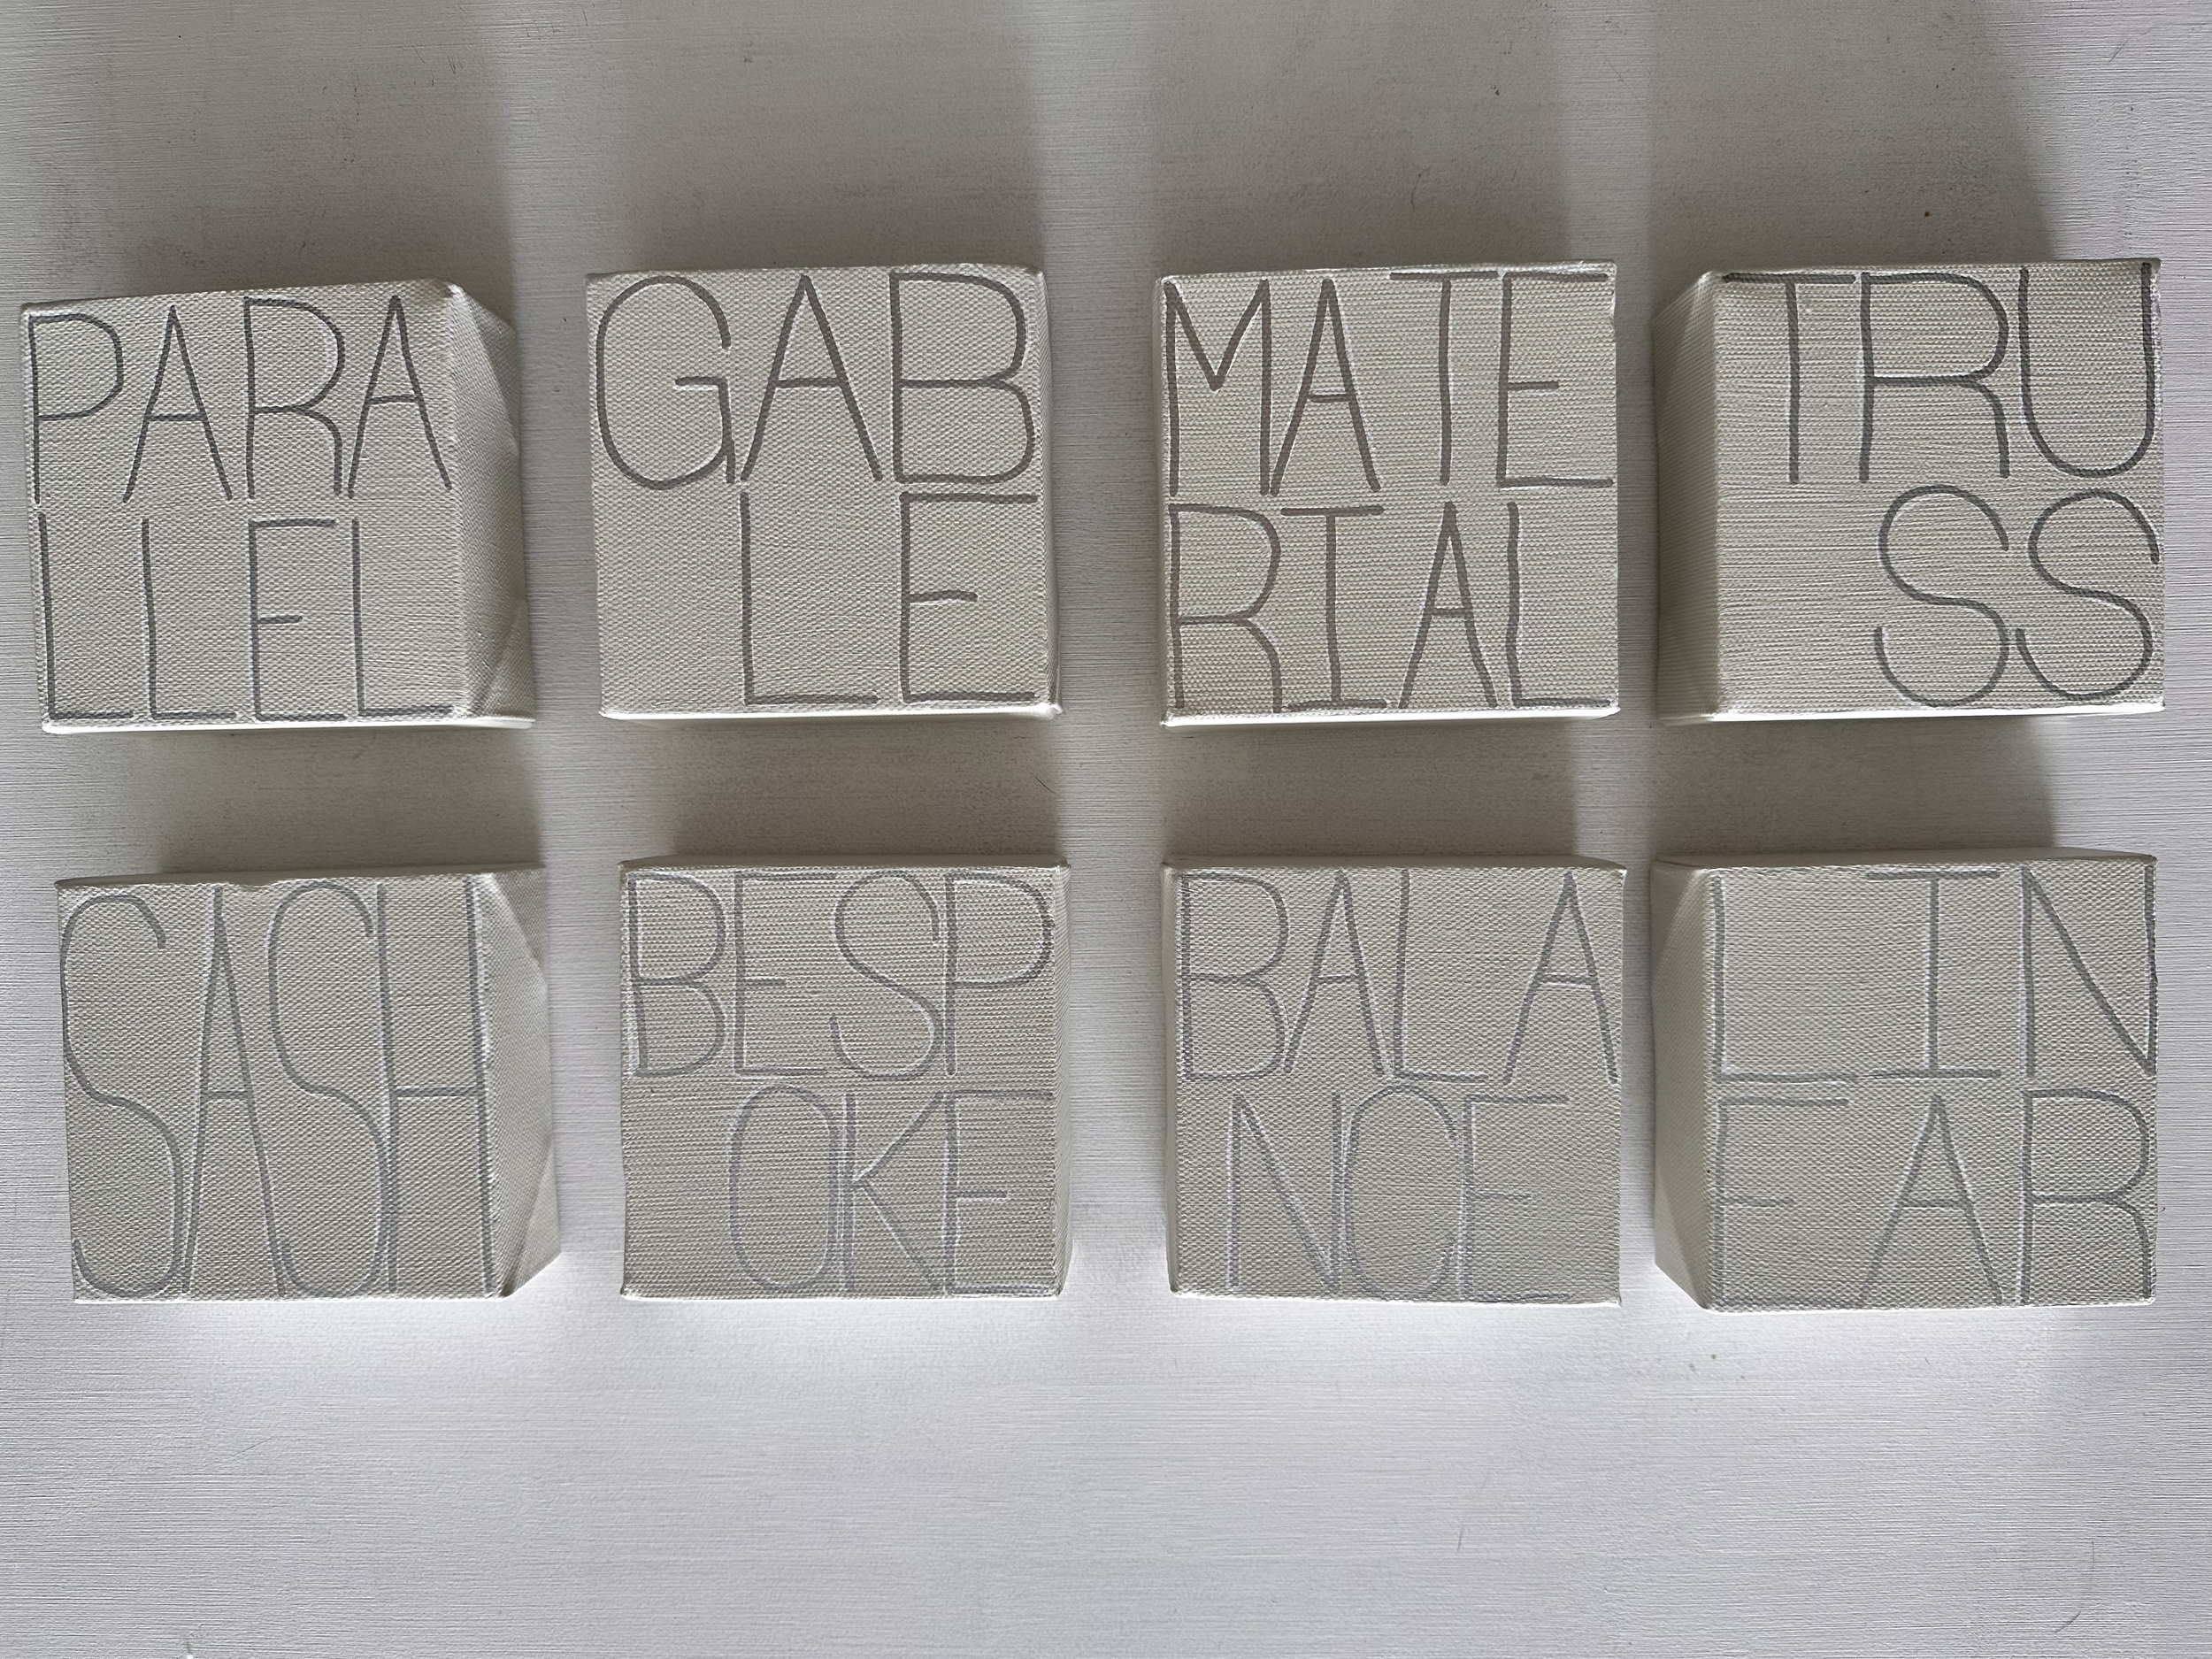 PARA
LLEL
GAB
LE
MATE
RIAL
TRU
SS
SASH
BESP
OKE
BALA
NCE
LIN
EAR